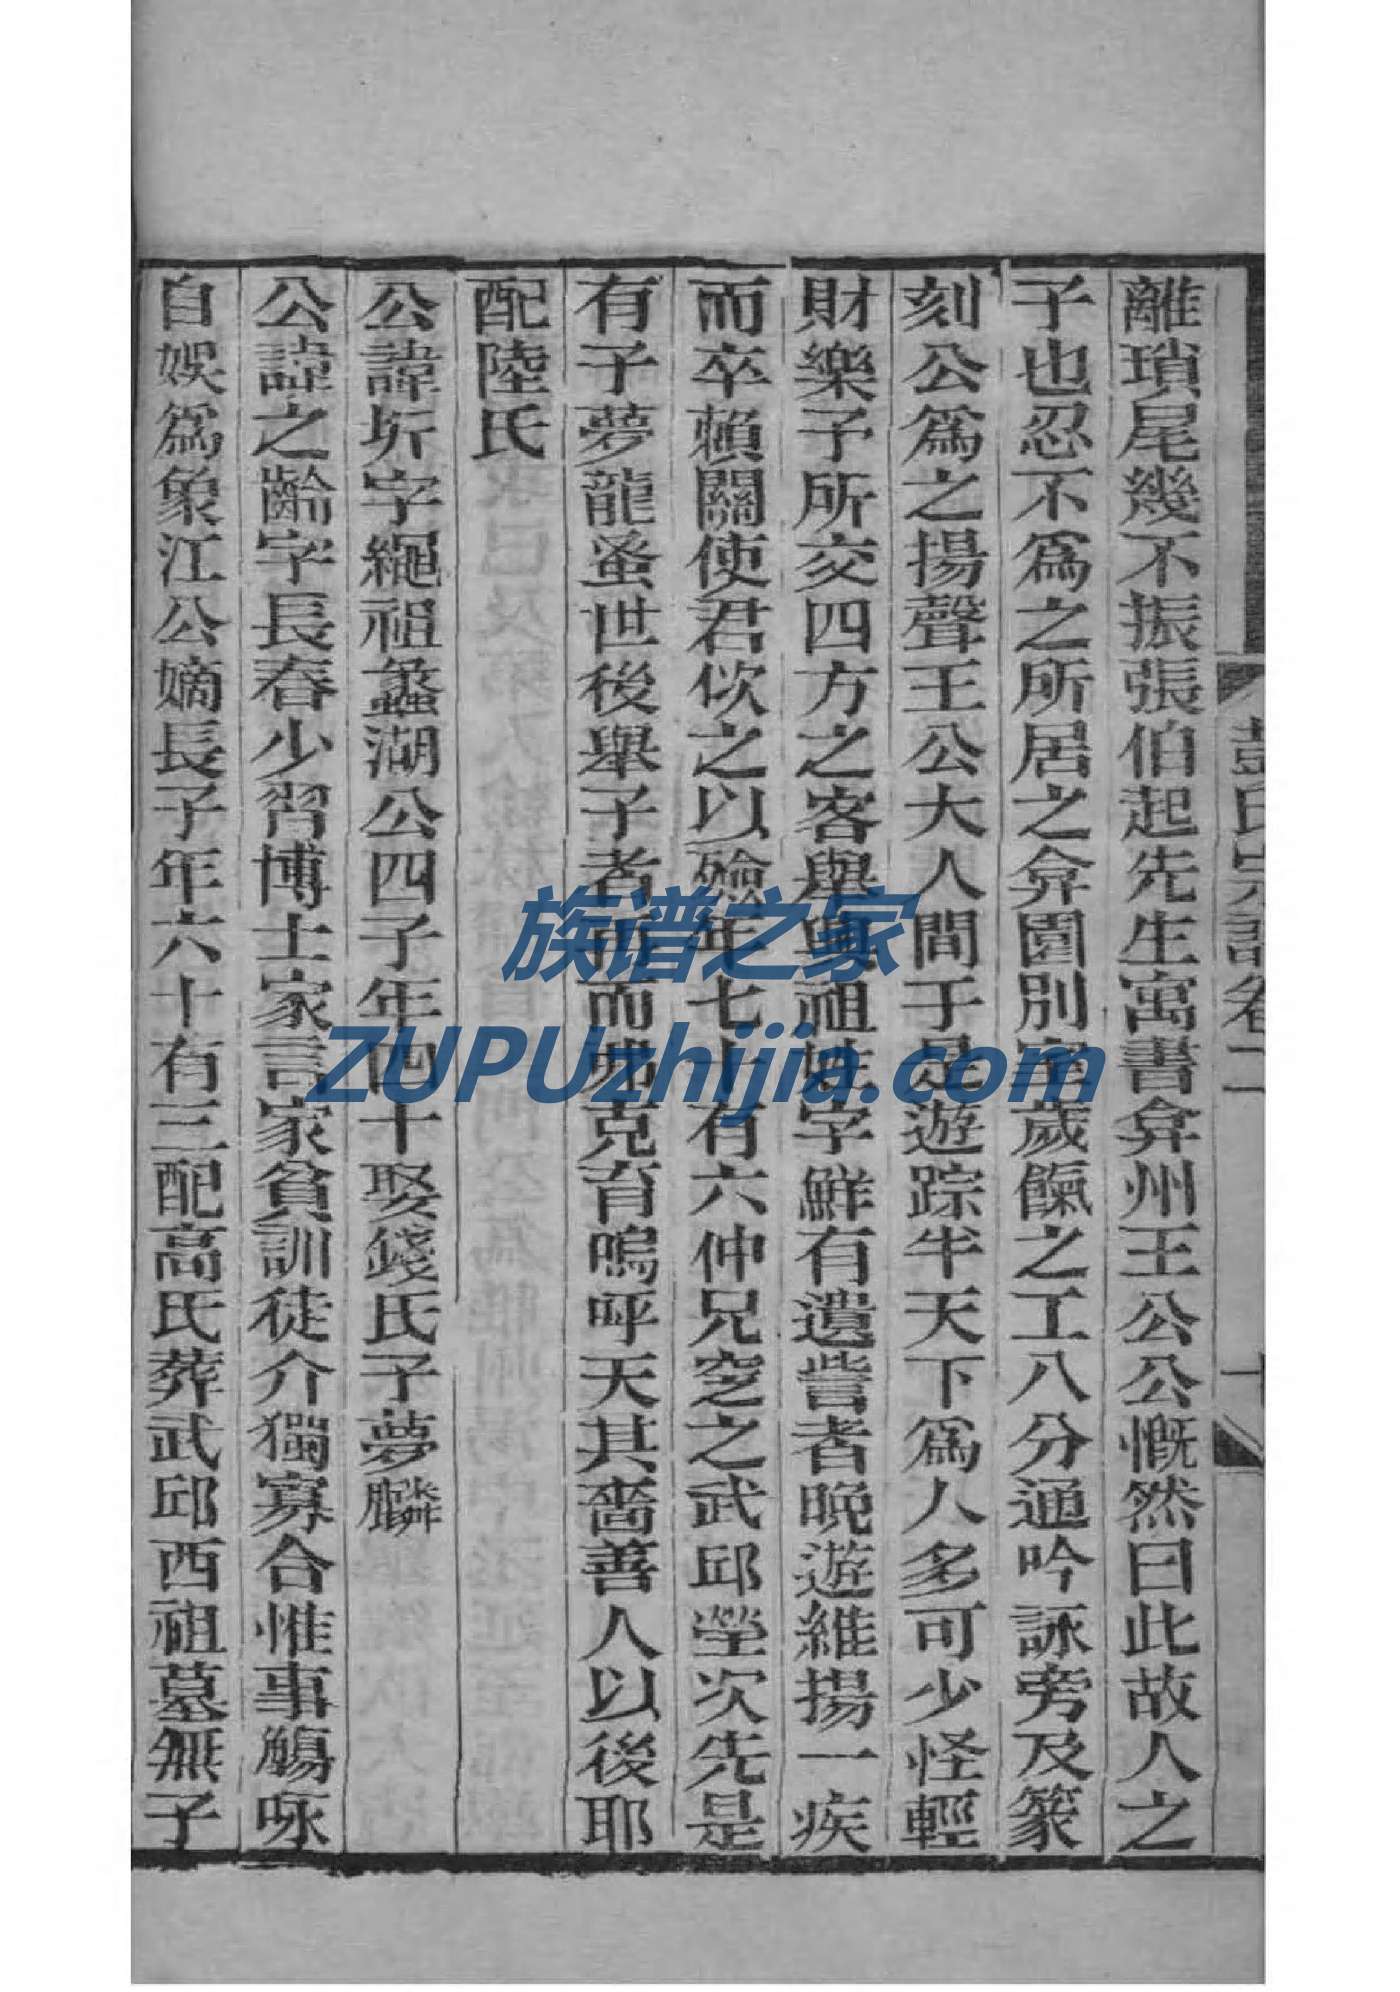 彭氏宗譜卷二
離瑣尾幾不振張伯起先生寓書弇州王公公慨然曰此故人之
子也忍不爲之所居之弇園別室歲餼之工八分通吟詠旁及篆
刻公爲之揚聲王公大人間于是遊踪半天下爲人多可少怪輕
財樂子所交四方之客與與祖姓字鮮有遺訾者晚遊維揚一疾
而卒賴關使君佽之以殮年七十有六仲兄窆之武邱塋次先是
有子夢龍蚤世後舉子者再而弗克育嗚呼天其嗇善人以後耶
配陸氏
公諱圻字繩祖蠡湖公四子年四十娶錢氏子夢麟
公諱之齡字長春少習博士家言家貧訓徒介獨寡合惟事觴咏
自娛爲象江公嫡長子年六十有三配高氏葬武邱西祖墓無子
族谱之家
ZUPUzhijia.com